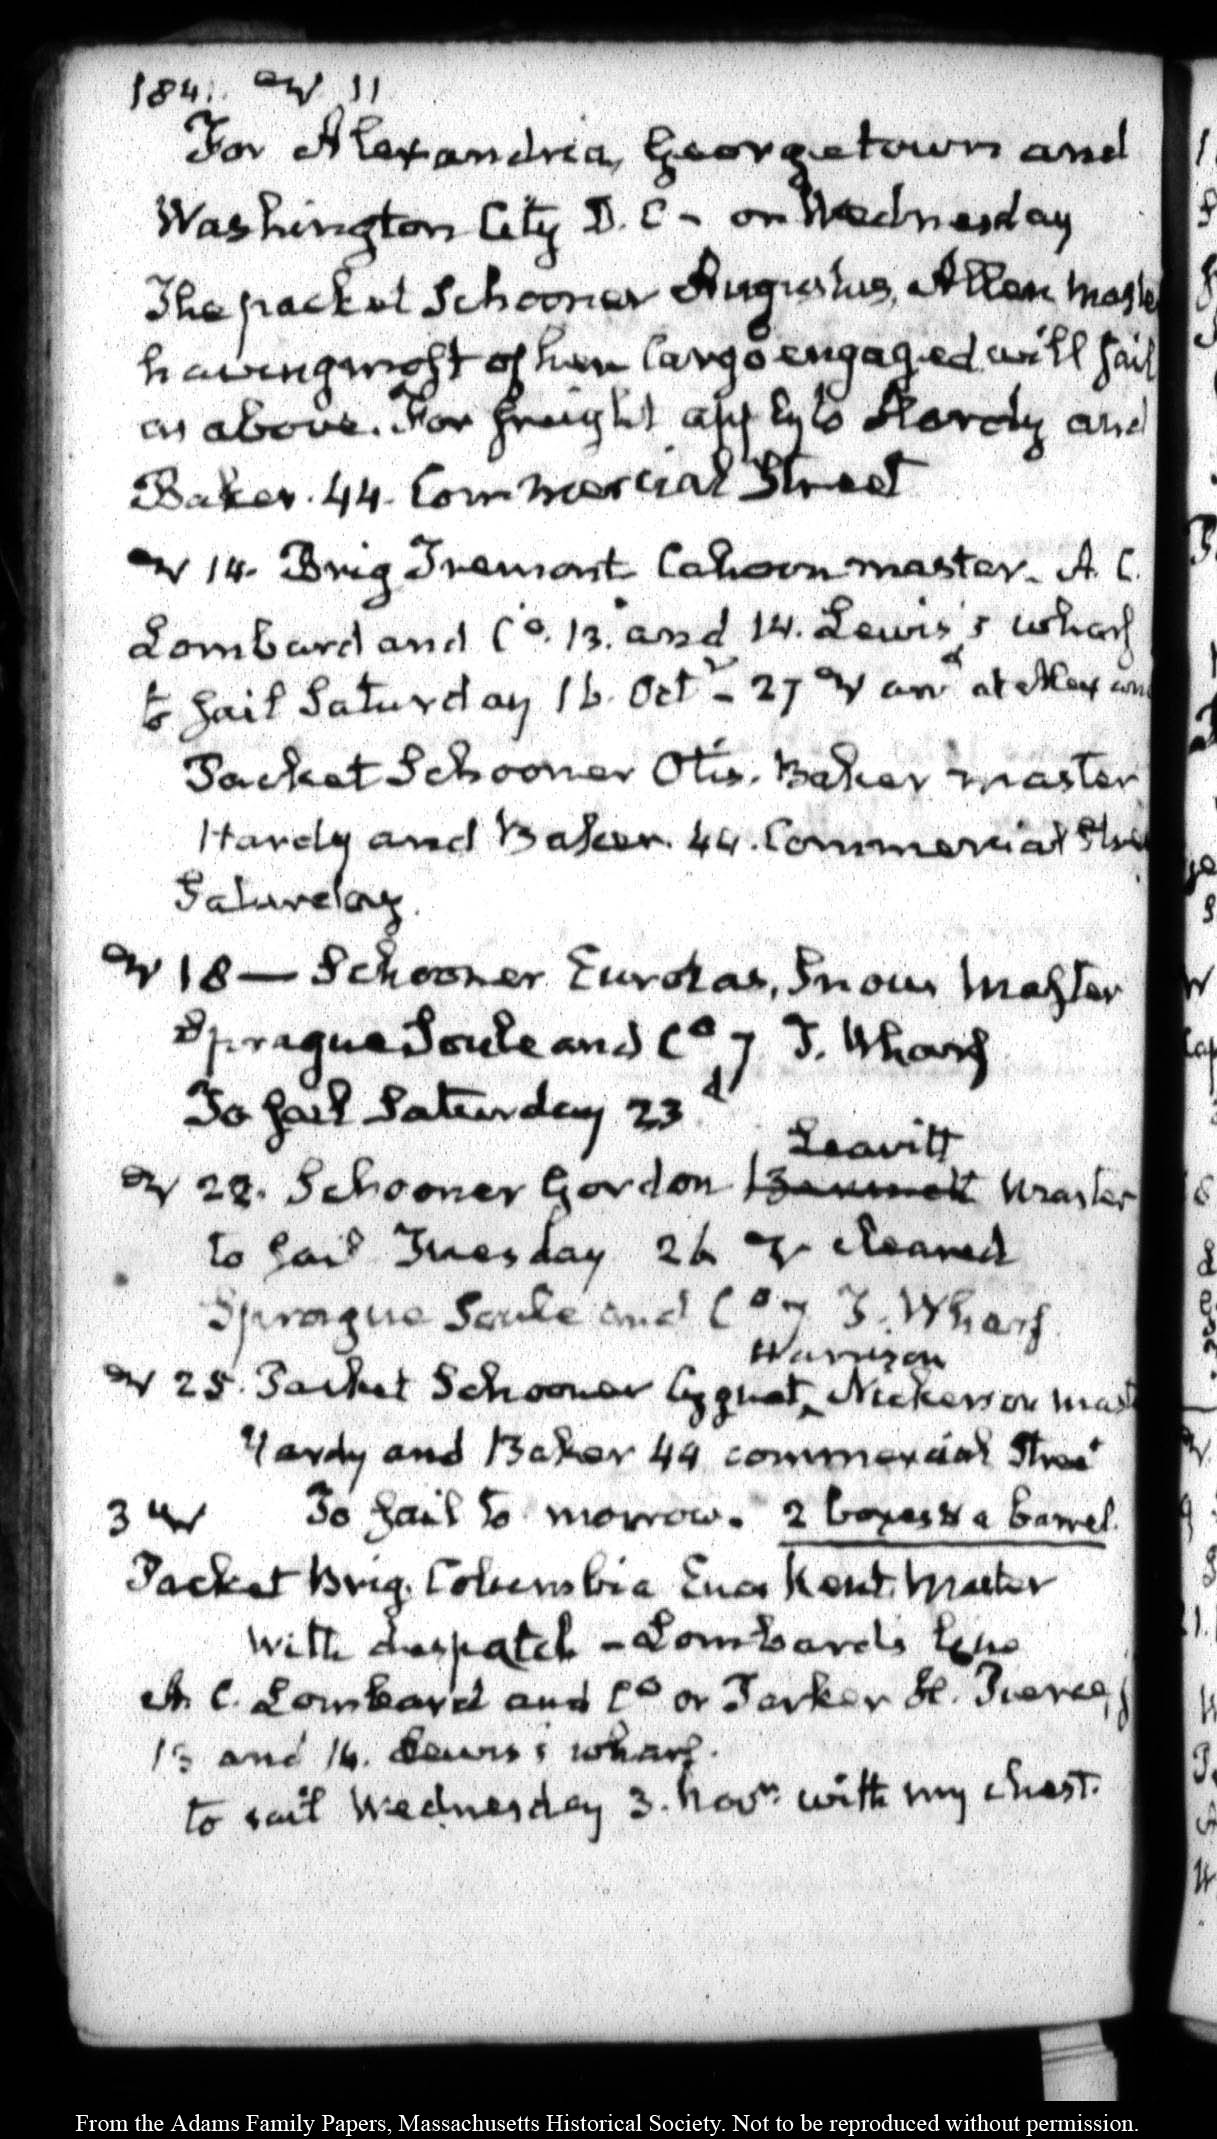 184 11
For Alexandria, Georgetown and
Washington City D. C - on Wednesday
The packet Schooner Augustus, Allen Maste
having most of her Cargo engaged will sail
as above. For freight apply to Hardy and
Baker. 44. Commercial Street
14. Brig Tremont Cahoon master. A. C.
Lombard and Co. 13. and 14. Lewis's wharf
to sail Saturday 16. Octr - 27 arrd at Alexan
Packet Schooner Otis. Baker master
Hardy and Baker. 44. Commercial Stre
Saturday.
18 — Schooner Eurotas, Snow Master
Sprague Soule and Co 7 T. Wharf
To sail Saturday 23d
Leavitt
22. Schooner Gordon master
to sail Tuesday 26 cleared
Sprague Soule and Co 7 T. Wharf
Harrison
25. Packet Schooner Cygnet, Nickerson mast
Hardy and Baker 44 commercial Street
3 To sail to morrow. 2 boxes & a barrel.
Packet Brig. Columbia Kent. Master
With despatch - Lombards line
A. C. Lombard and Co or Parker H. Pierce,
13 and 14. Lewis's wharf.
to sail Wednesday 3. Novr. with my chest.
From the Adams Family Papers, Massachusetts Historical Society. Not to be reproduced without permission.